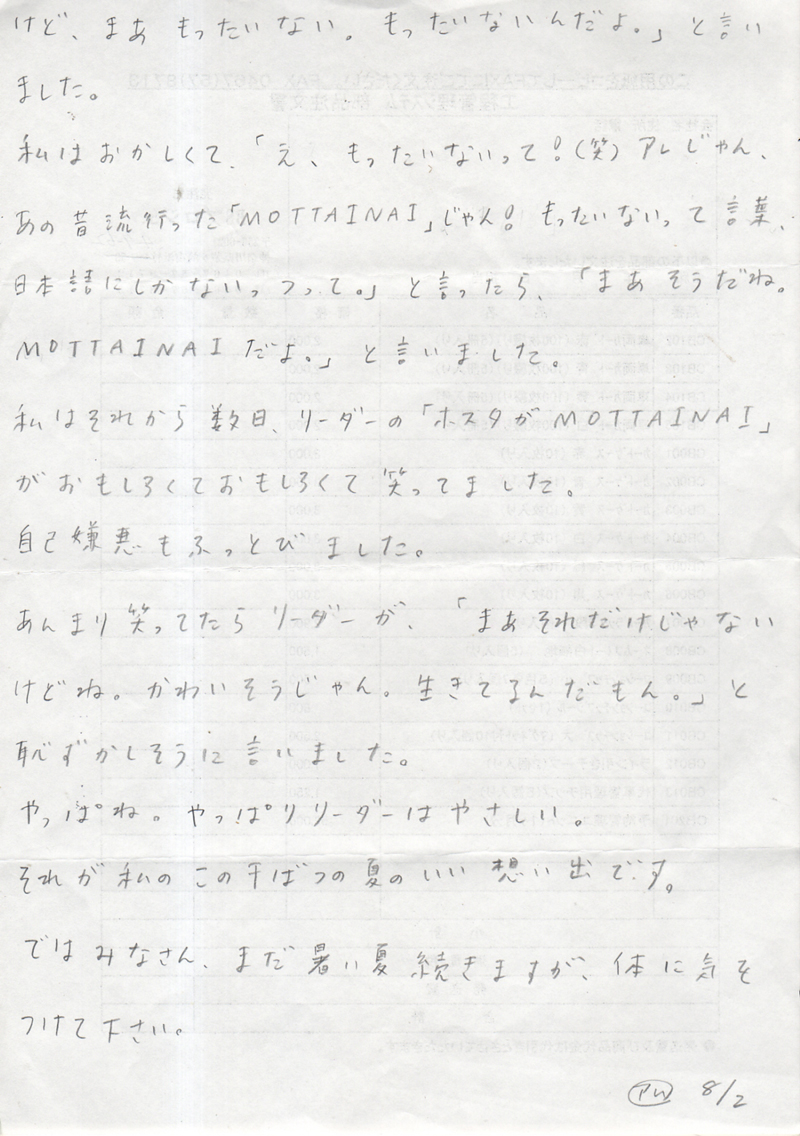 けど、まあもったいない。もったいないんだよ。」と言い
ました。
私はおかしくて、「え、もったいないって!(笑)アレじゃん、
あの昔流行った「MOTTAINAI」じゃん!もったいないって言葉、
日本語にしかないっつって。」と言ったら、「まあそうだね。
MOTTAINAIだよ。」と言いました。
私はそれから数日、リーダーの「ホスタがMOTTAINAI」
がおもしろくておもしろくて笑ってました。
自己嫌悪もふっとびました。
あんまり笑ってたらリーダーが、「まあそれだけじゃない
けどね。かわいそうじゃん。生きてるんだもん。」と
恥ずかしそうに言いました。
やっぱね。やっぱりリーダーはやさしい。
それが私のこの干ばつの夏のいい想い出です。
ではみなさん、まだ暑い夏続きますが、体に気を
つけて下さい。
8/2